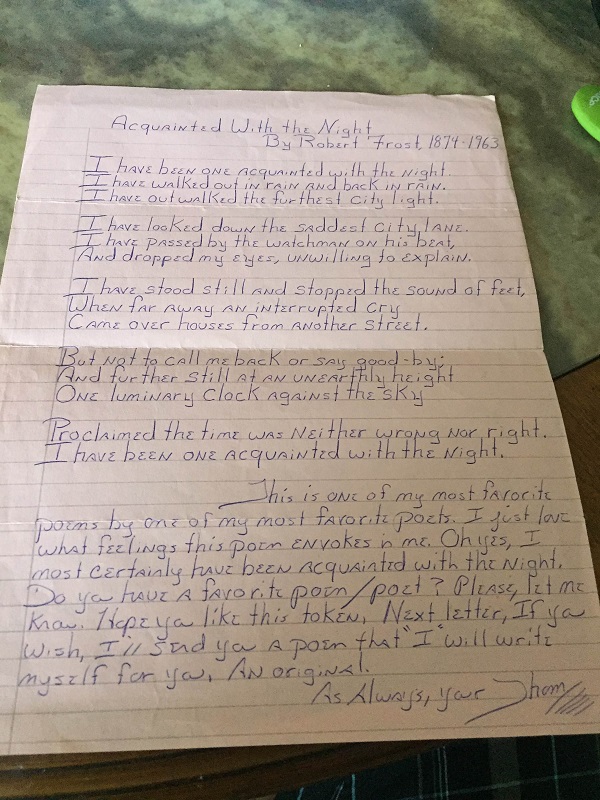 Acquainted With the Night
By Robert Frost, 1874-1963
I have been one acquainted with the night.
I have walked out in rain and back in rain.
I have out walked the furthest city light.
I have looked down the saddest city lane.
I have passed by the watchman on his beat,
And dropped my eyes, unwilling to explain.
I have stood still and stopped the sound of feet,
When far away an interrupted cry
Came over houses from another street.
But not to call me back or say good-by;
And further still at an unearthly height
One luminary clock against the sky
Proclaimed the time was neither wrong nor right.
I have been one acquainted with the night.
This is one of my most favorite
poems by one of my most favorite poets. I just love
what feelings this poem envokes in me. Oh yes, I
most certainly have been acquainted with the night.
Do ya have a favorite poem/poet? Please, let me
know. Hope ya like this token. Next letter, If ya
wish, I'll send ya a poem that "I" will write
myself for you. An original.
As Always, your Thom